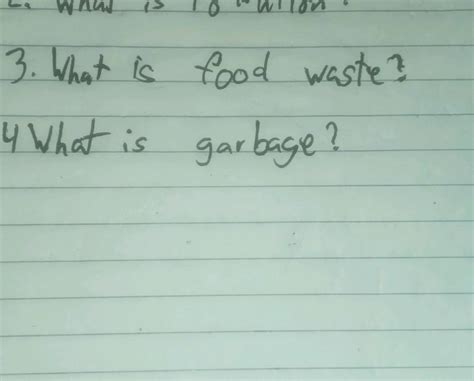 2. What is
3. What is food waste?
4 What is garbage?